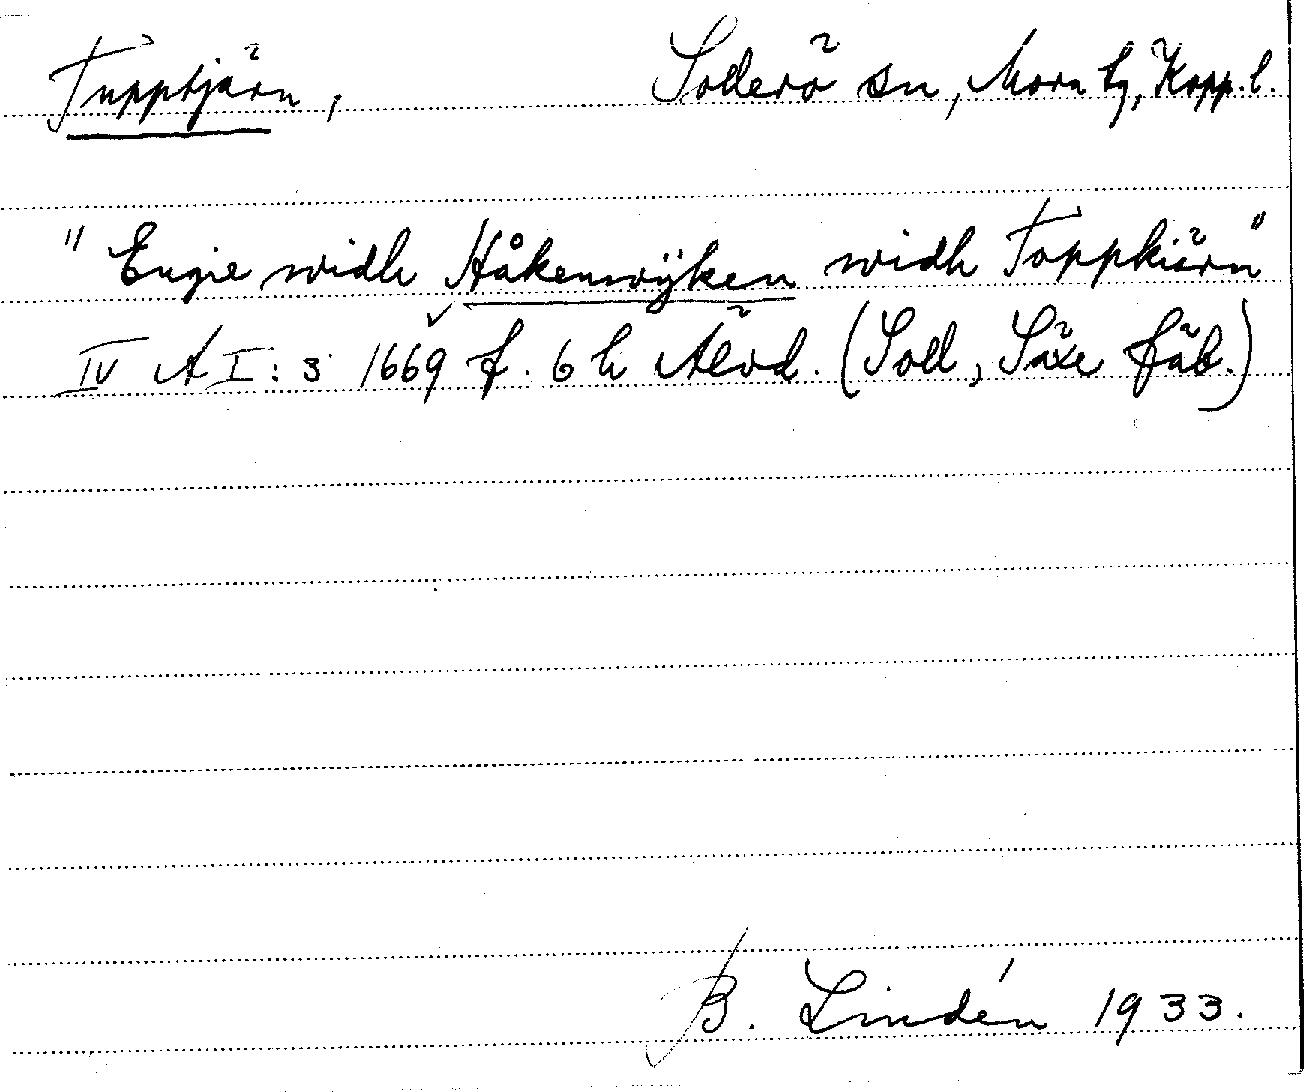 Tupptjärn, Sollerö sn, Mora tg, Kopp. l.
"Engie widh Håkenwÿken widh Toppkiärn"
IV A I: 3 1669 f. 6 h Älvd. (Soll, Säxe fäb.)
B. Lindén 1933.